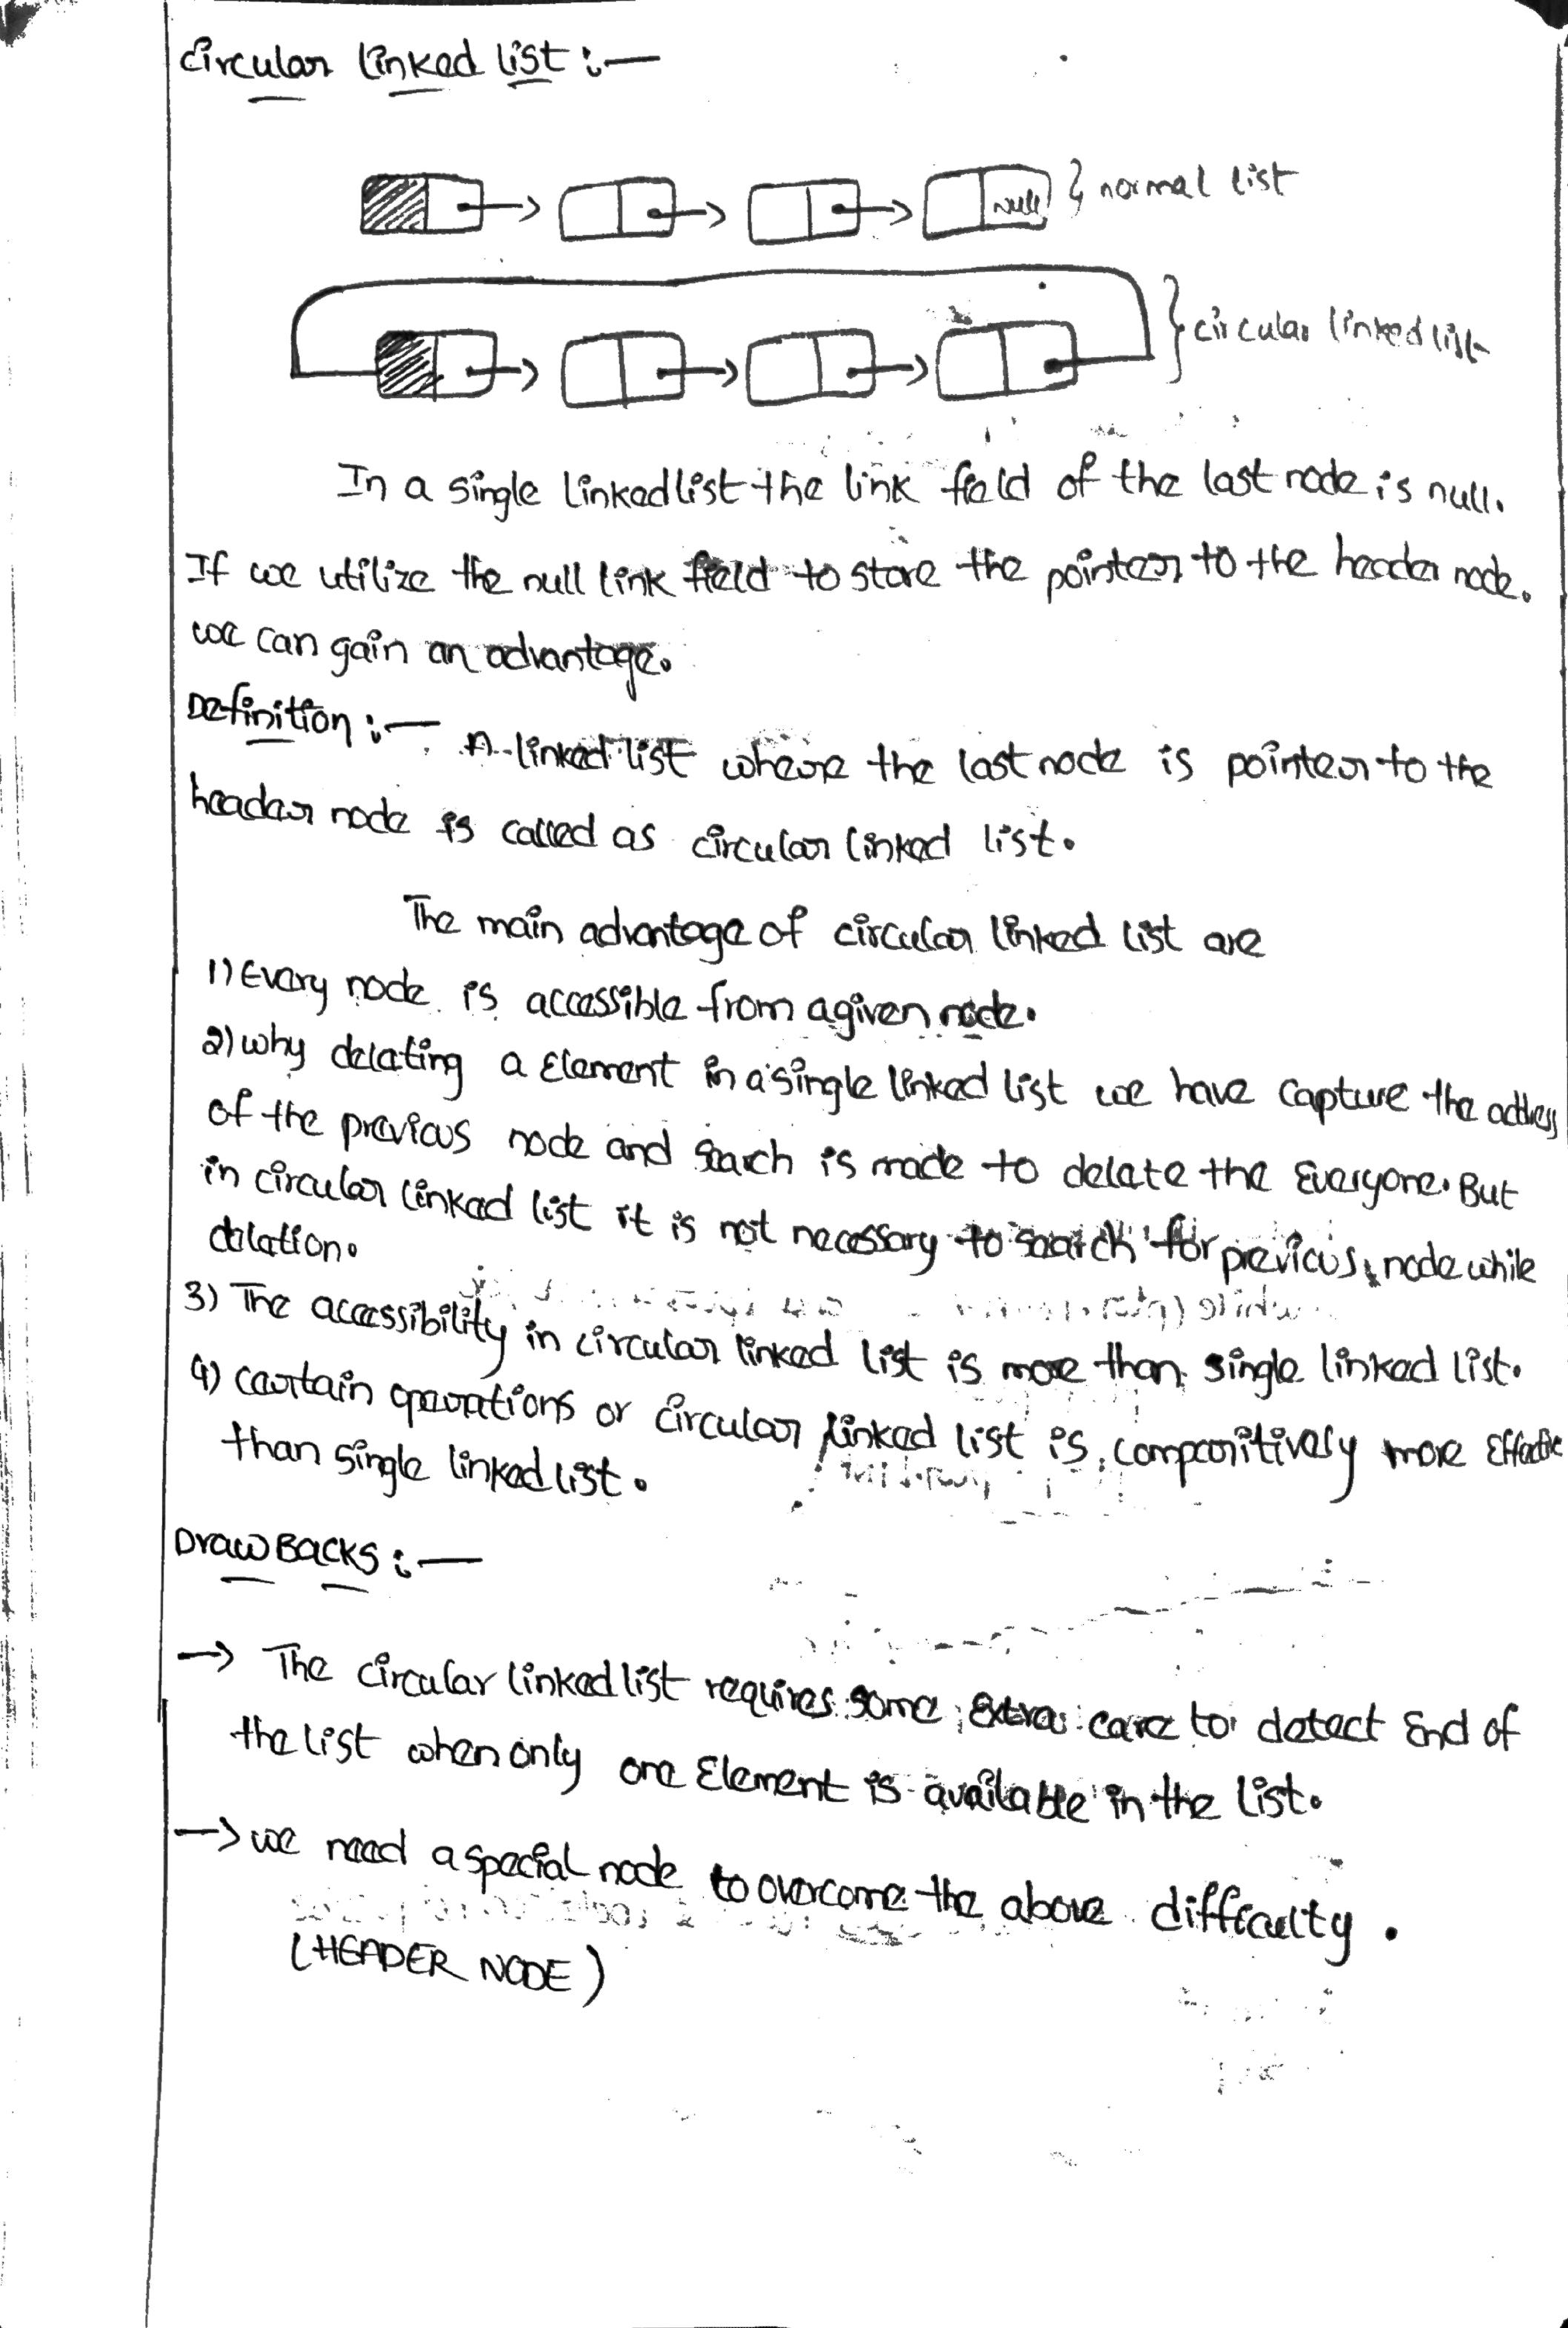 Circular linked list :—
Null } normal list
} circular linked list
In a single linked list the link field of the last node is null.
If we utilize the null link field to store the pointer to the header node.
we can gain an advantage.
Definition :— A linked list where the last node is pointer to the
header node is called as circular linked list.
The main advantage of circular linked list are
1) Every node is accessible from a given node.
2) why deleting a Element in a single linked list we have capture the address
of the previous node and search is made to delete the Everyone. But
in circular linked list it is not necessary to search for previous node while
deletion.
3) The accessibility in circular linked list is more than single linked list.
4) certain operations or circular linked list is comparitively more Effective
than single linked list.
DrawBacks :—
→ The circular linked list requires some extra care to detect End of
the list when only one Element is available in the list.
→ we need a special node to overcome the above difficulty.
(HEADER NODE)